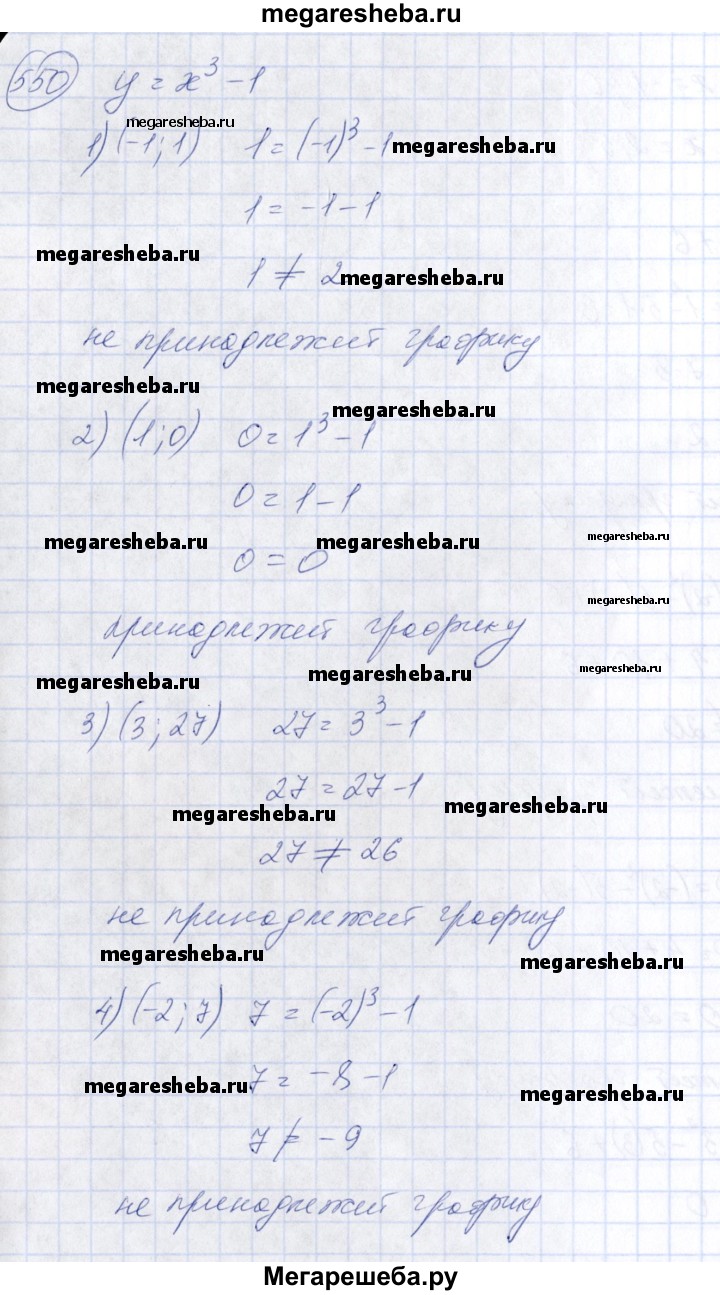 megaresheba.ru
550 y = x³ - 1
megaresheba.ru
1) (-1; 1) 1 = (-1)³ - 1 megaresheba.ru
1 = -1 - 1
megaresheba.ru
1 ≠ 2 megaresheba.ru
не принадлежит графику
megaresheba.ru
megaresheba.ru
2) (1; 0) 0 = 1³ - 1
0 = 1 - 1
megaresheba.ru megaresheba.ru megaresheba.ru
0 = 0
megaresheba.ru
принадлежит графику
megaresheba.ru megaresheba.ru megaresheba.ru
3) (3; 27) 27 = 3³ - 1
27 = 27 - 1
megaresheba.ru megaresheba.ru
27 ≠ 26
не принадлежит графику
megaresheba.ru megaresheba.ru
4) (-2; 7) 7 = (-2)³ - 1
megaresheba.ru 7 = -8 - 1 megaresheba.ru
7 ≠ -9
не принадлежит графику
Мегарешеба.ру